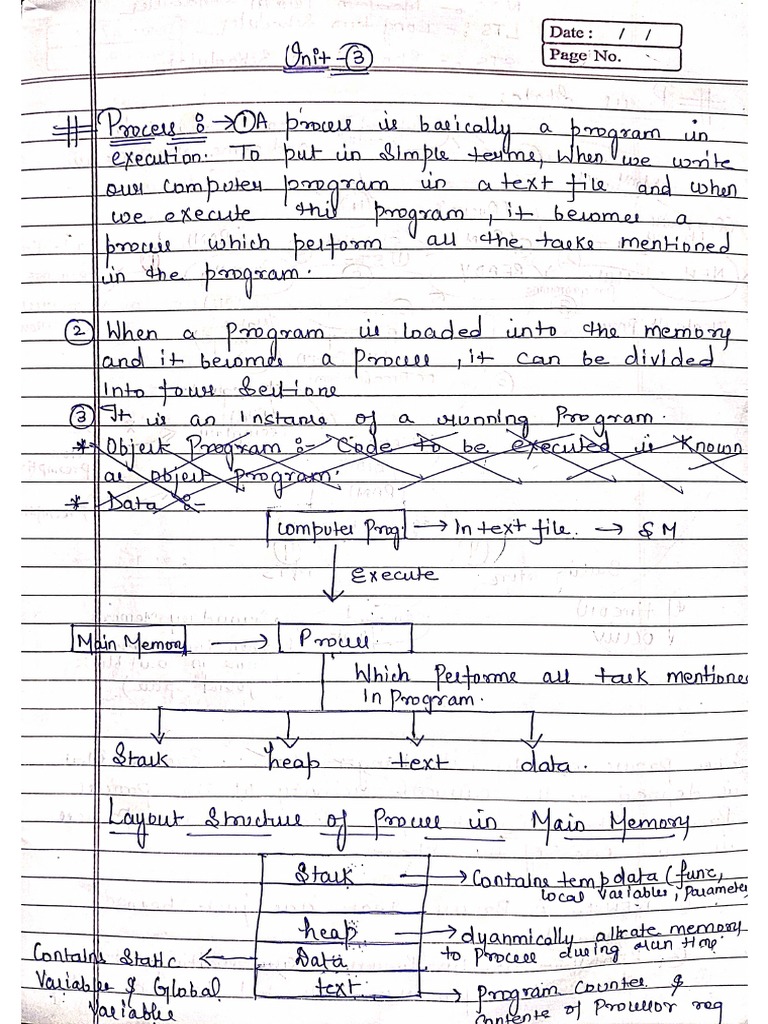 Date : / /
Page No.
Unit - 3
# Process :→ ① A process is basically a program in
execution. To put in simple terms, when we write
our computer program in a text file and when
we execute this program, it becomes a
process which perform all the tasks mentioned
in the program.
② When a program is loaded into the memory
and it becomes a process, it can be divided
into four sections
③ It is an instance of a running program.
* Object Program :- Code to be executed is known
as object program.
* Data :-
Computer Prog. → In text file. → S M
Execute
Main Memory → Process
Which performs all task mentioned
in program.
Stack heap text data.
Layout Structure of Process in Main Memory
Stack → Contains temp data (func,
local variables, parameter
heap → dyanmically allcate memory
to process during run time.
Contains Static ← Data
Variables & Global
Variables
text → Program Counter &
Contents of Processor reg